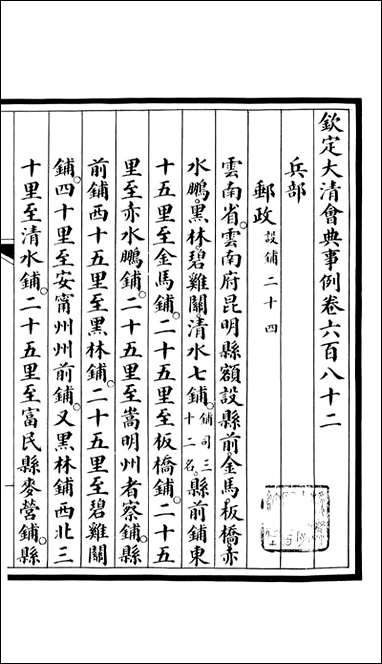 欽定大清會典事例卷六百八十二
兵部
郵政設鋪二十四
雲南省。雲南府昆明縣額設縣前金馬板橋赤
水鵬黑林碧雞關清水七鋪。鋪司三十二名。縣前鋪東
十五里至金馬鋪。二十五里至板橋鋪。二十五
里至赤水鵬鋪。二十五里至嵩明州者察鋪。縣
前鋪西十五里至黑林鋪。二十五里至碧雞關
鋪。四十里至安甯州州前鋪。又黑林鋪西北三
十里至清水鋪。二十五里至富民縣麥營鋪。縣